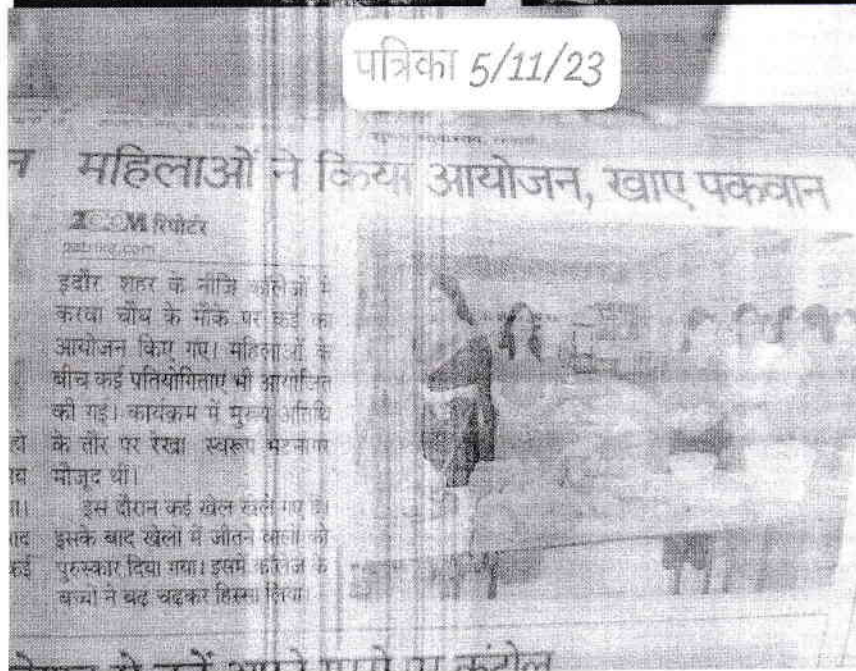 पत्रिका 5/11/23
महिलाओं ने किया आयोजन, खाए पकवान
ZOOM रिपोर्टर
patrika.com
इंदौर शहर के नीजि कॉलेजों में
करवा चौथ के मौके पर कई का
आयोजन किए गए। महिलाओं के
बीच कई पतियोगिताए भी आयोजित
की गई। कार्यक्रम में मुख्य अतिथि
के तौर पर रेखा स्वरूप भटनागर
मौजूद थीं।
इस दौरान कई खेल खेले गए
इसके बाद खेलों में जीतने वालों को
पुरुस्कार दिया गया। इसमें कॉलेज के
बच्चों ने बढ़ चढ़कर हिस्सा लिया।